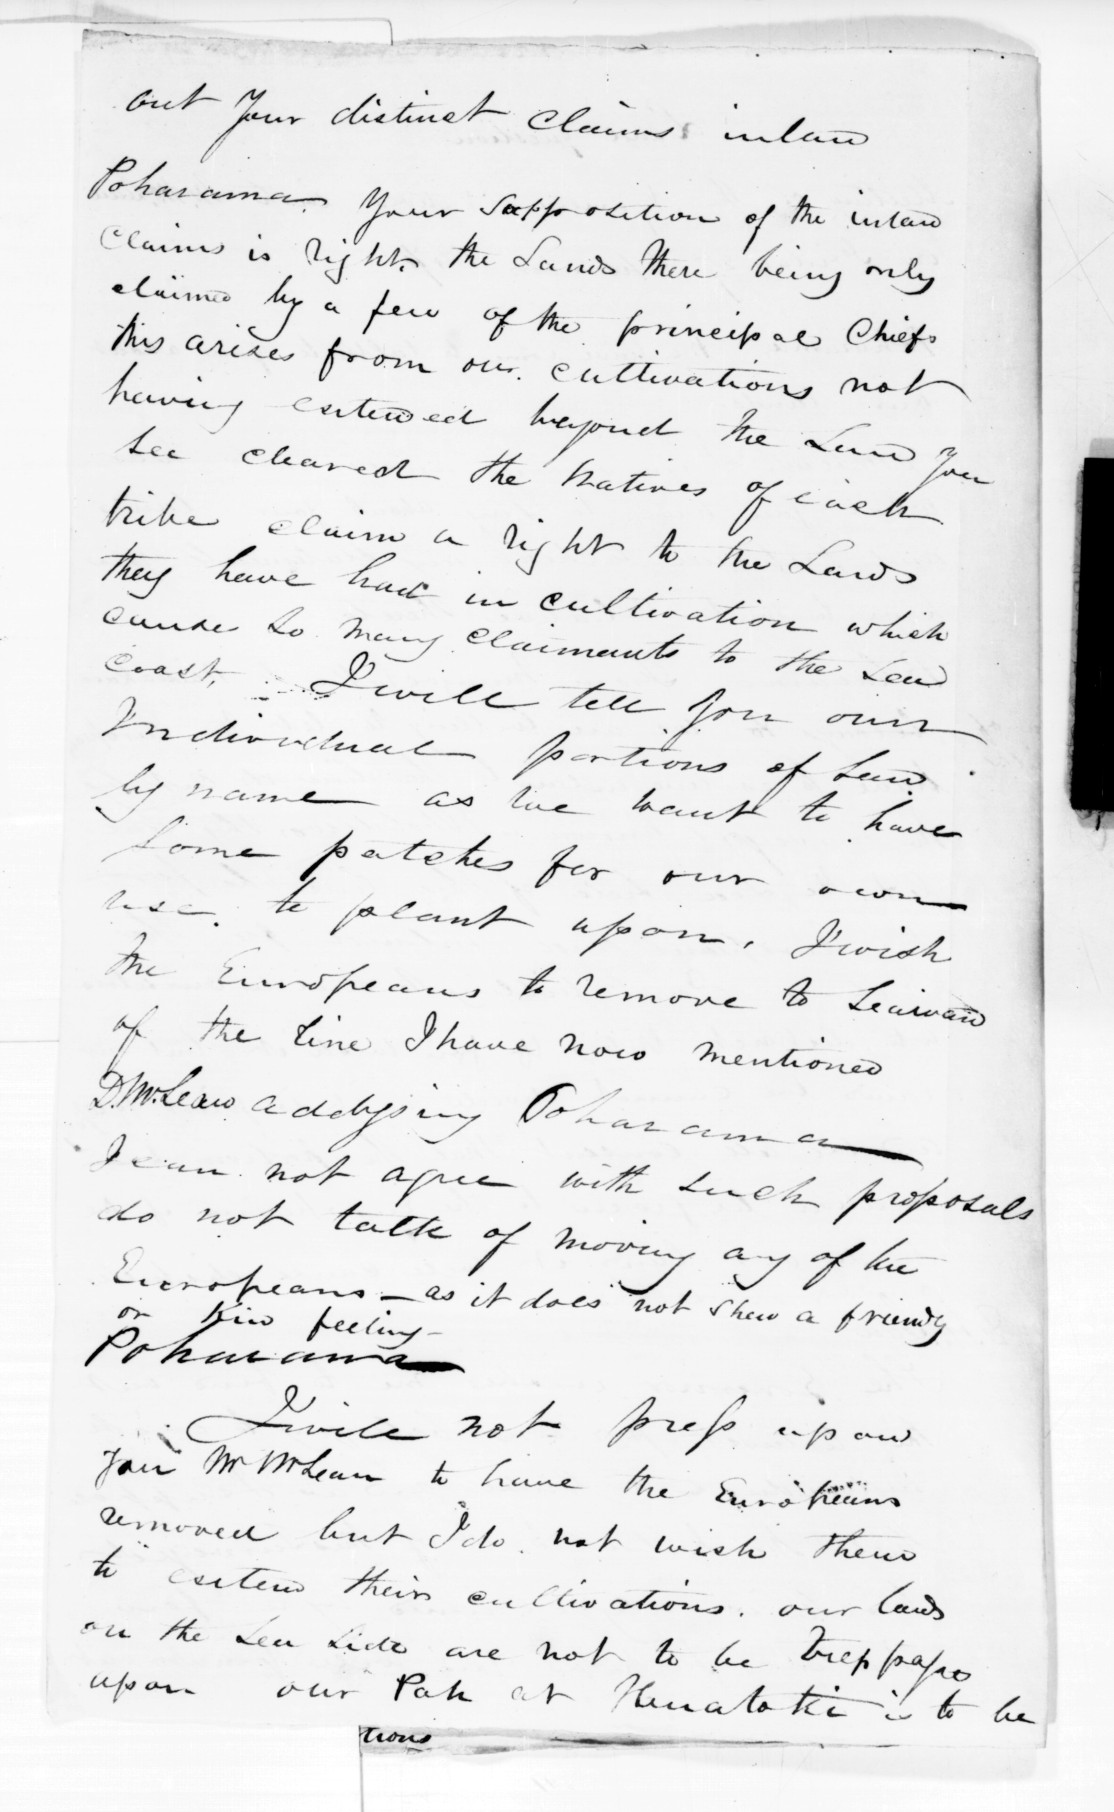 out your distinct claims inland
Poharama. Your supposition of the inland
claims is right. the Lands there being only
claimed by a few of the principal Chiefs
this arises from our cultivations not
having extended beyond the Land you
see cleared the Natives of each
tribe claim a right to the Lands
they have had in cultivation which
cause so many claimants to the Sea
Coast, I will tell you our
individual portions of Land
by name as we want to have
some patches for our own
use. to plant upon. I wish
the Europeans to remove to Seaward
of the line I have now mentioned
D. McLean addressing Poharama
I can not agree with such proposals
do not talk of moving any of the
Europeans - as it does not shew a friendly
or kind feeling -
Poharama
I will not press upon
you Mr McLean to have the Europeans
removed but I do not wish them
to extend their cultivations. our lands
on the Sea Side are not to be trespass
upon our Pah at Huatoki is to be
tions